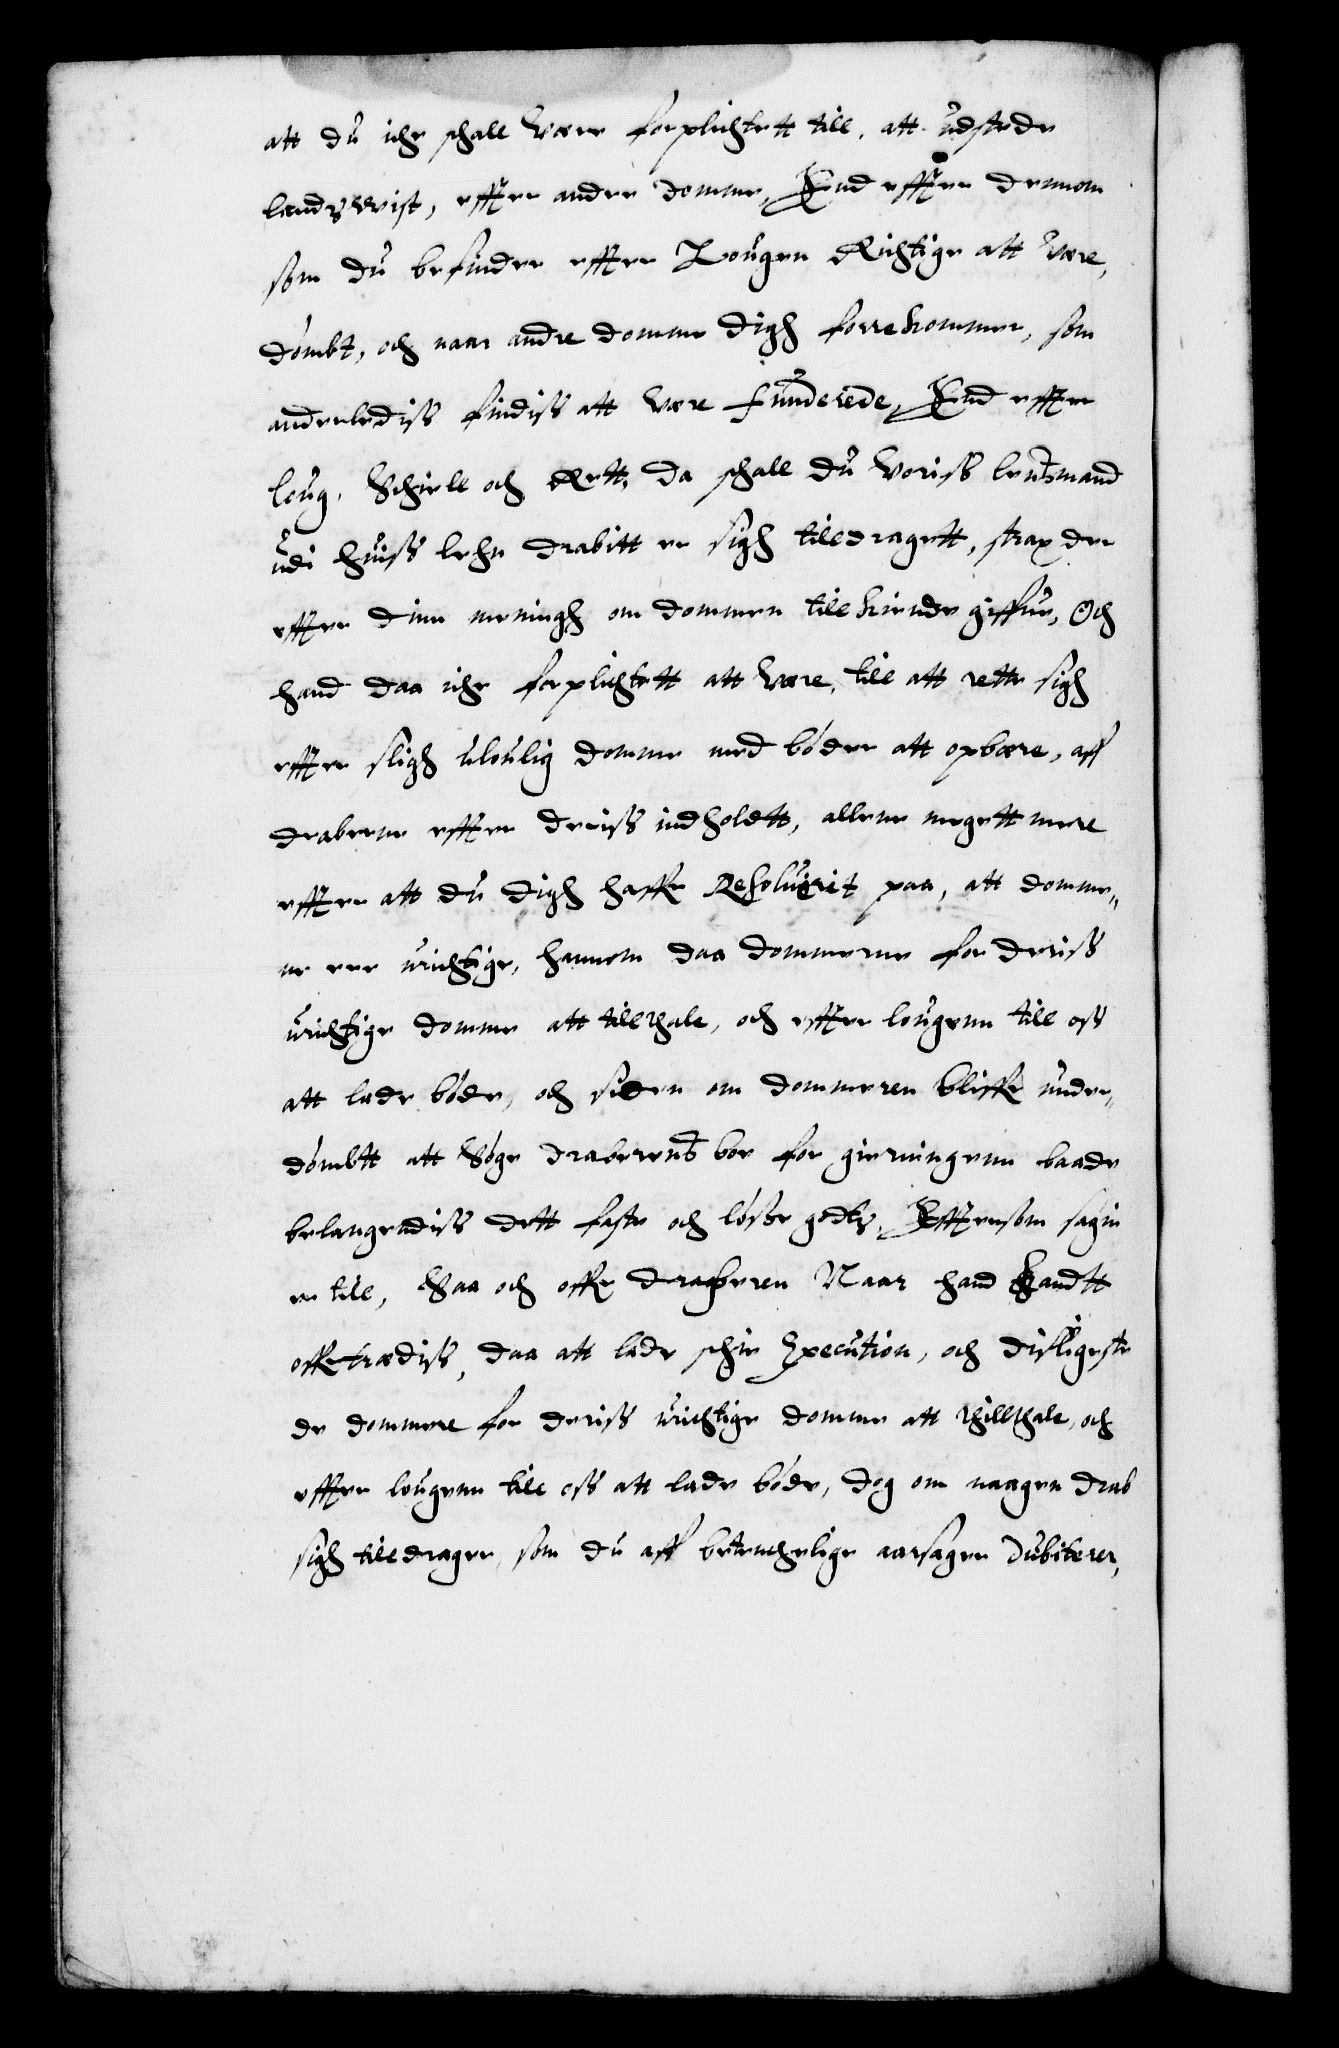 att du iche schall være forplichtett till, att udstede
landzwist, effter andre domme, End effter dennom
som du befinder effter Lougen Richtige att være,
dømbt, och naar andre domme digh forrekommer, som
anderlediss findiss att være funderede, End effter
loug, Schiell och Rett, da schall du voriss lensmand
udi huiss lehn drabitt er sigh tilldragett, strax der
effter dinn meningh om dommen tillkiende giffue, Och
hand daa iche forplichtett att være, till att rette sigh
effter sligh uloulig domme med bøder att opbære, aff
draberne effter deriss indholdtt, allene megett mere
effter att du digh haffr Resoluerit paa, att domme„
ne ere urichtige, hannom daa dommerne for deriss
urichtige domme att tillthale, och effter lougenn till oss
att lade bøde, och siden om dommeren bliffr under„
dømbtt att Søge draberens boe for gierningenn baade
belangendiss dett faste och løsse godtz, Efftersom sagen
er till, Saa och offr draberen Naar hand kandtt
offrtrædiss, daa att lade schie Execution, och disligeste
de dommere for deriss urichtige domme att thillthale, och
effter lougenn till oss att lade bøde, dog om naagen drab
sigh tilldrager, som du aff betenchelige aarsager Dubiterer,